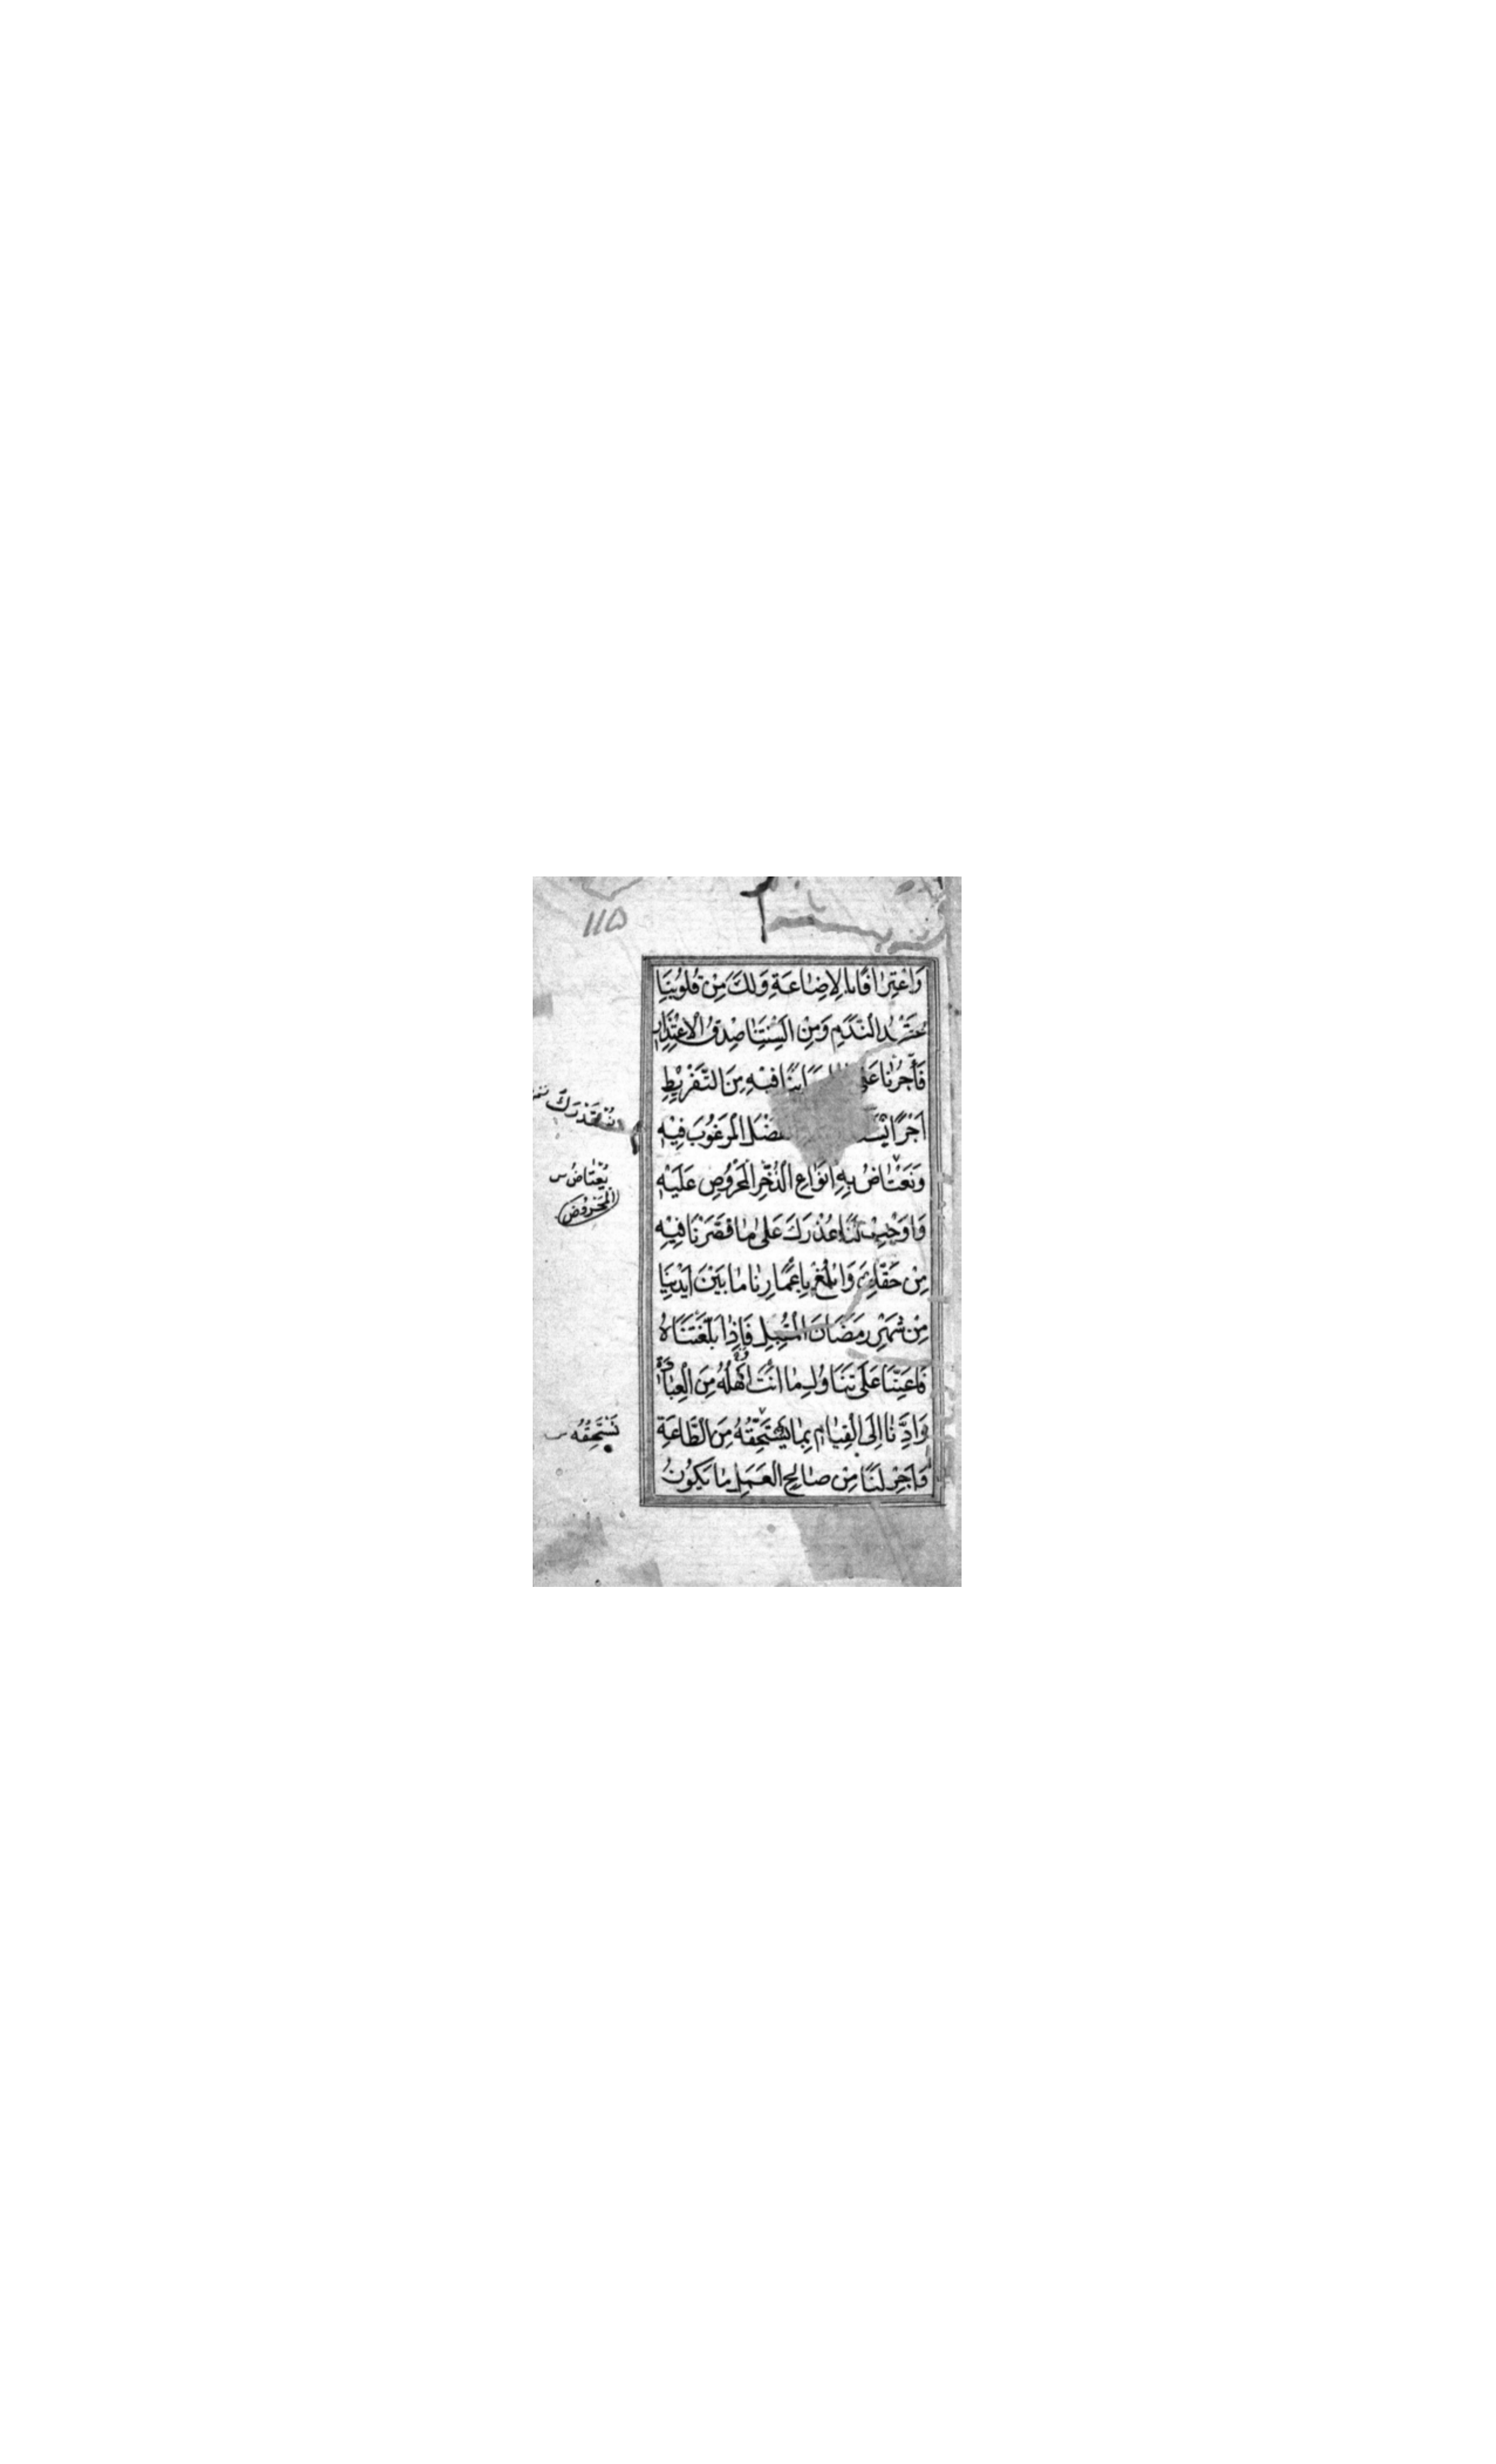 ١١۵
وَاعْتِرَافًا بِالْاِضَاعَةِ وَلَكَ مِنْ قُلُوبِنَا
عَقْدُ النَّدَمِ وَمِنْ اَلْسِنَتِنَا صِدْقُ الْاِعْتِذَارِ
فَأْجُرْنَا عَلَى بَنَا فِيهِ مِنَ التَّفْرِيطِ
اَجْرًا الْمَرْغُوبَ فِيهِ
وَنَعْتَاضُ بِهِ اَنْوَاعِ الذُّخْرِ الْمَحْرُوصِ عَلَيْهِ
وَاَوْجِبْ لَنَا عُذْرَكَ عَلَى مَا قَصَّرْنَا فِيهِ
مِنْ حَقِّكَ وَابْلُغْ بِاَعْمَارِنَا مَا بَيْنَ اَيْدِينَا
مِنْ شَهْرِ رَمَضَانَ الْمُقْبِلِ فَاِذَا بَلَّغْتَنَاهُ
فَاَعِنَّا عَلَى تَنَاوُلِ مَا اَنْتَ اَهْلُهُ مِنَ الْعِبَادَةِ
وَاَدِّنَا اِلَى الْقِيَامِ بِمَا يَسْتَحِقُّهُ مِنَ الطَّاعَةِ
وَاَجْرِ لَنَا مِنْ صَالِحِ الْعَمَلِ مَا يَكُونُ
يُعْتَاضُ س
الْمَحْرُوصَ
تَسْتَحِقُّهُ س